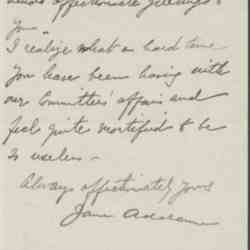 affectionate greetings to
you"
I realize what a hard time
you have been having with
our Committees' affairs and
feel quite mortified to be
so useless —
Always affectionately yours
Jane Addams